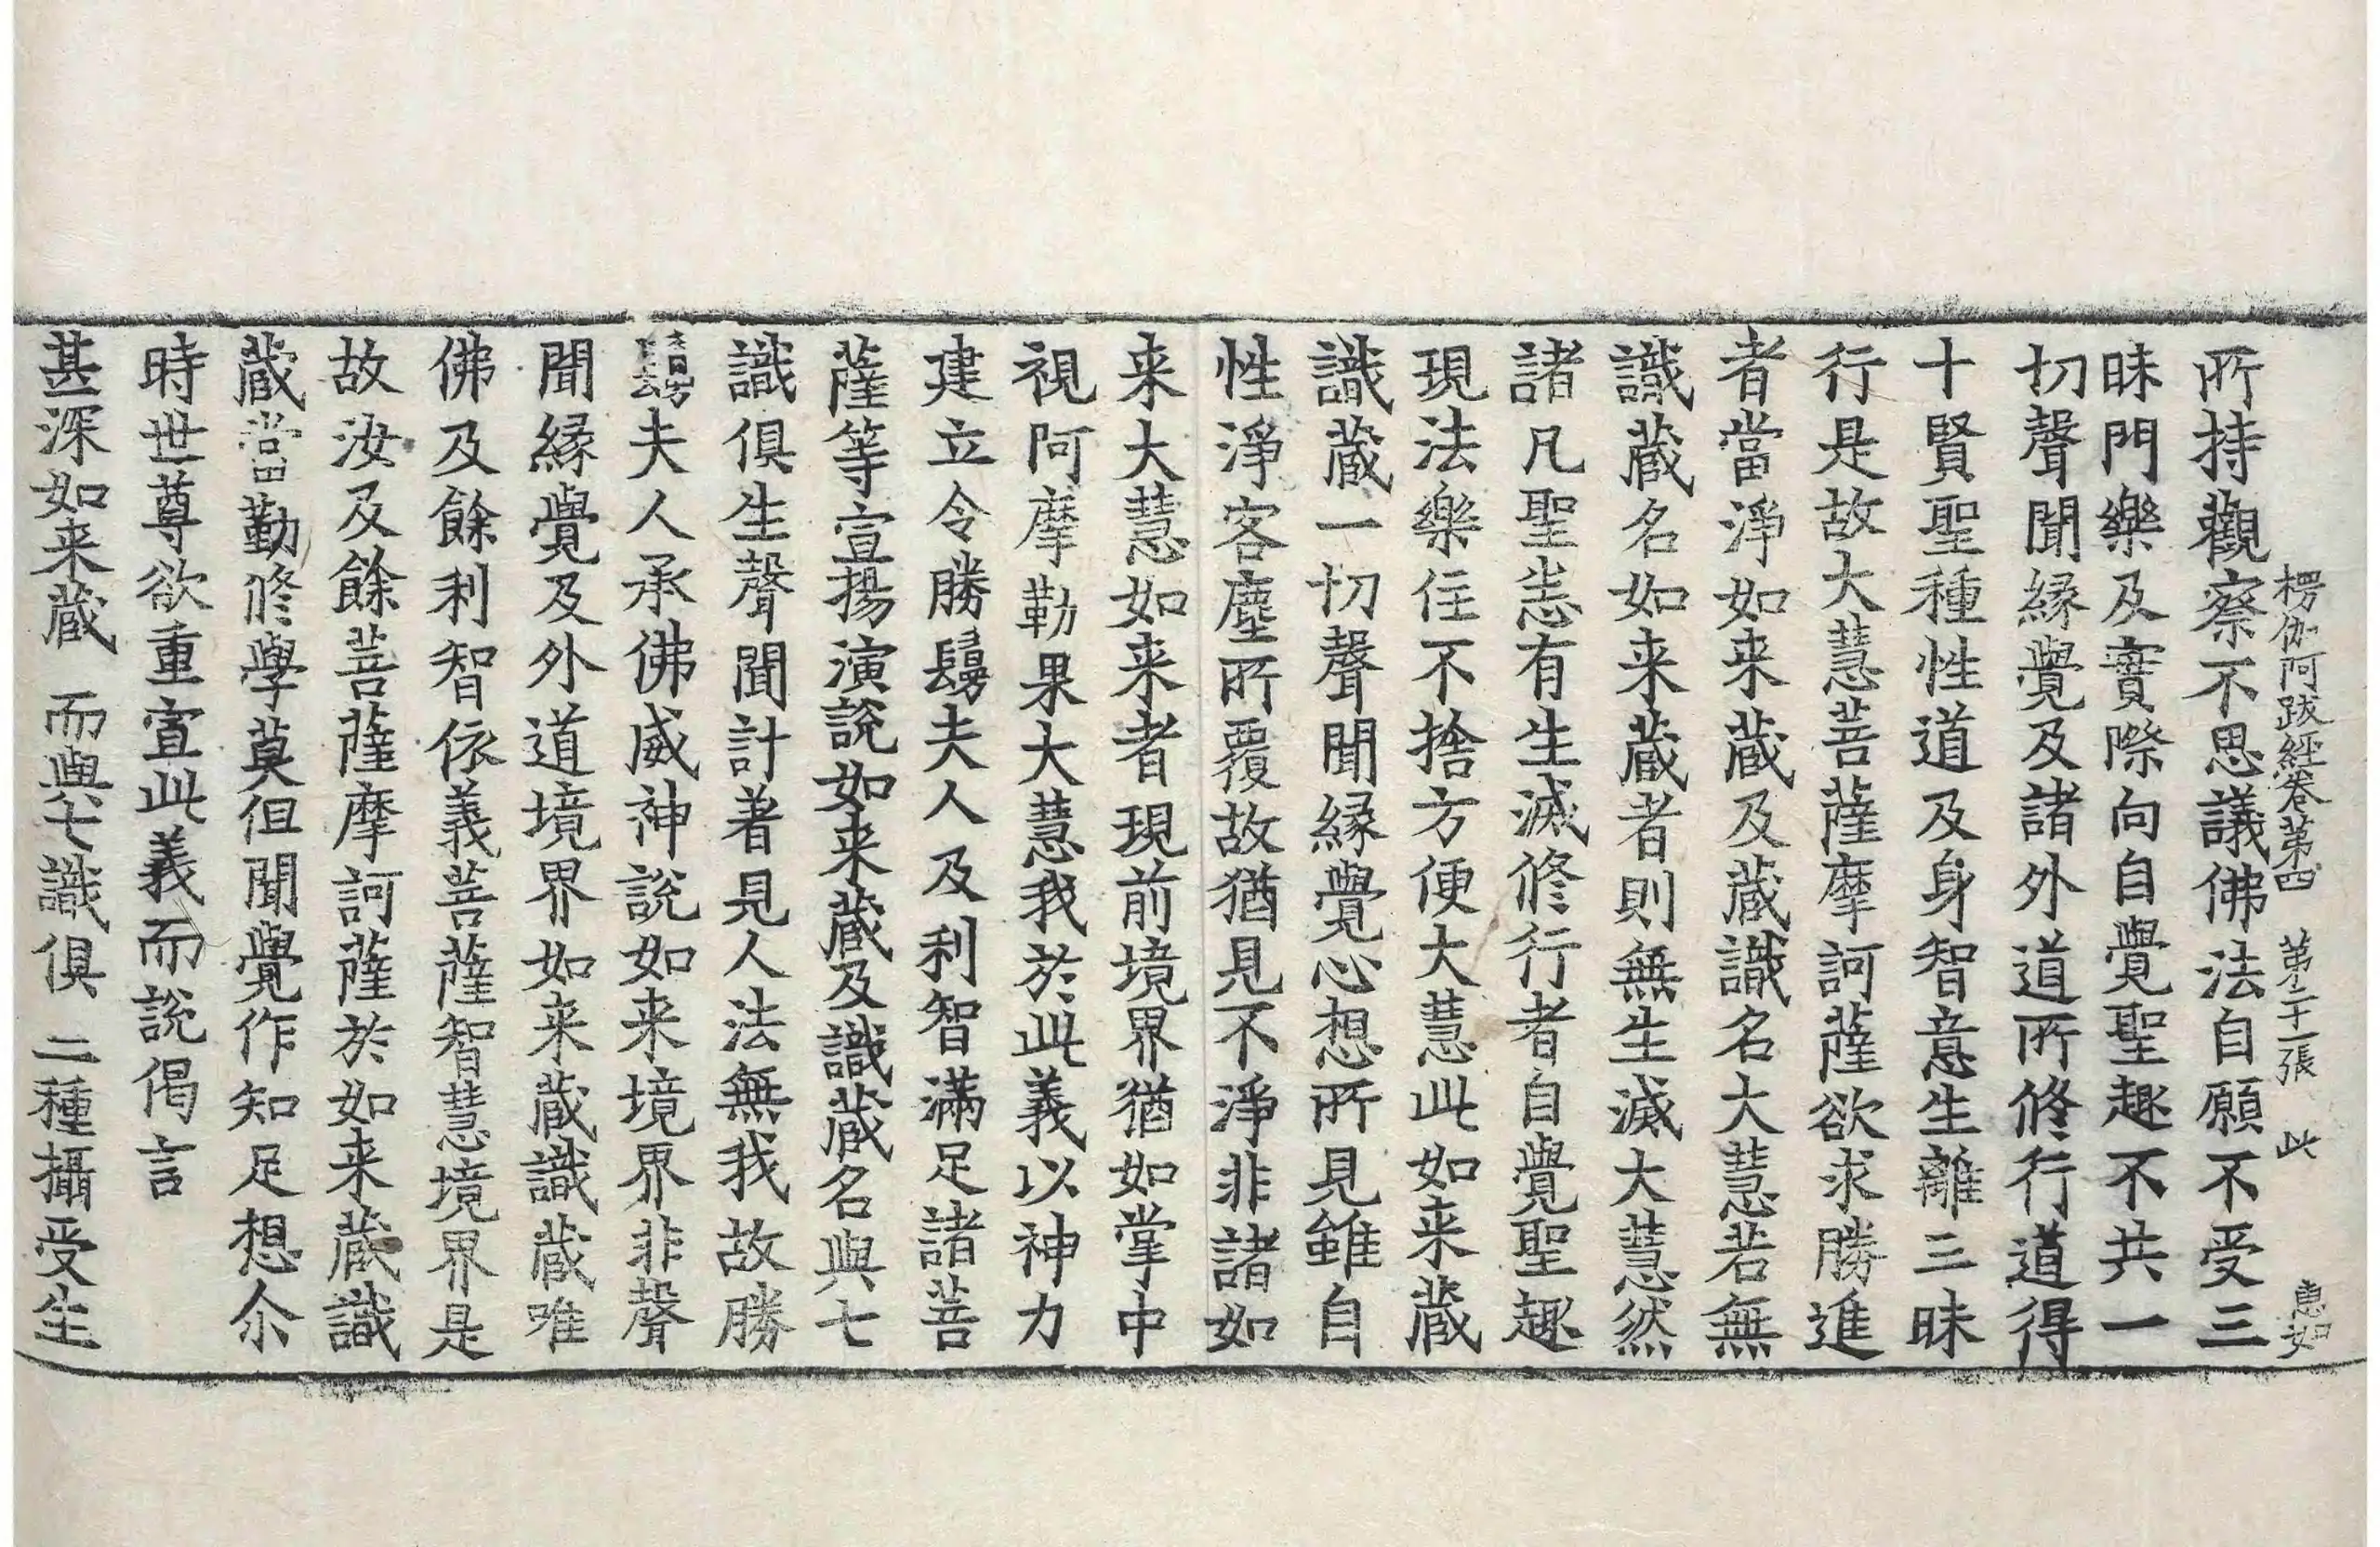 楞伽阿跋經卷第四　第二十一張　此　惠如
所持觀察不思議佛法自願不受三
昧門樂及實際向自覺聖趣不共一
切聲聞縁覺及諸外道所修行道得
十賢聖種性道及身智意生離三昧
行是故大慧菩薩摩訶薩欲求勝進
者當淨如来蔵及蔵識名大慧若無
識蔵名如来蔵者則無生滅大慧然
諸凡聖悉有生滅修行者自覺聖趣
現法樂住不捨方便大慧此如来蔵
識蔵一切聲聞縁覺心想所見雖自
性淨客塵所覆故猶見不淨非諸如
来大慧如来者現前境界猶如掌中
視阿摩勒果大慧我於此義以神力
建立令勝鬘夫人及利智滿足諸菩
薩等宣揚演說如来蔵及識蔵名與七
識俱生聲聞計著見人法無我故勝
鬘夫人承佛威神說如来境界非聲
聞縁覺及外道境界如来蔵識蔵唯
佛及餘利智依義菩薩智慧境界是
故汝及餘菩薩摩訶薩於如来蔵識
蔵當勤修學莫但聞覺作知足想尒
時世尊欲重宣此義而說偈言
甚深如来蔵　而與七識俱　二種攝受生